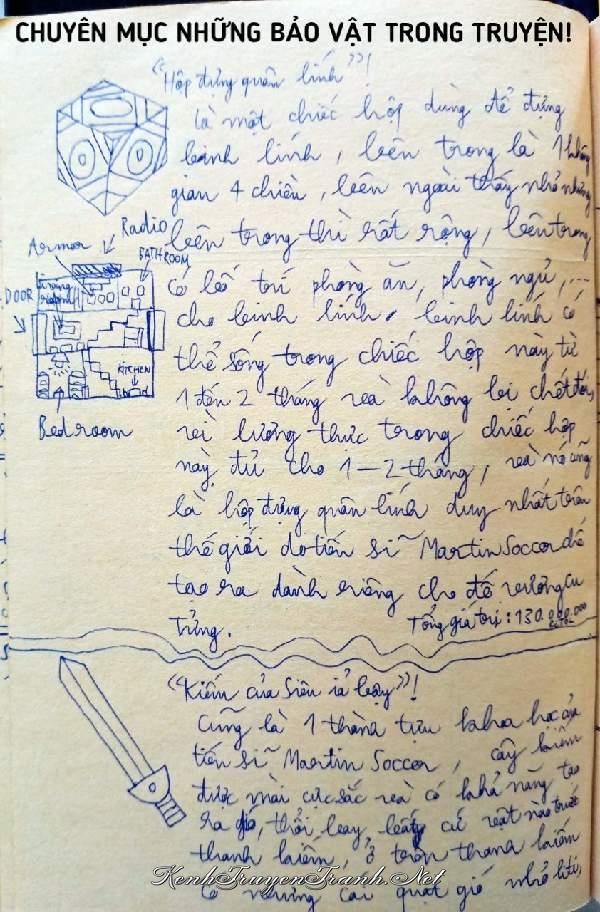 CHUYÊN MỤC NHỮNG BẢO VẬT TRONG TRUYỆN!
"Hộp đựng quân lính"!
Là một chiếc hộp dùng để đựng
binh lính, bên trong là 1 không
gian 4 chiều, bên ngoài thấy nhỏ nhưng
bên trong thì rất rộng, bên trong
có bố trí phòng ăn, phòng ngủ,...
cho binh lính. binh lính có
thể sống trong chiếc hộp này từ
1 đến 2 tháng và không bị chết đói,
vì lương thực trong chiếc hộp
này đủ cho 1-2 tháng, và nó cũng
là hộp đựng quân lính duy nhất trên
thế giới do tiến sĩ Martin Soccer chế
tạo ra dành riêng cho đế vương cu
trứng.
Tổng giá trị: 130.000.000
Armor
Radio
BATHROOM
DOOR
KITCHEN
Bedroom
"Kiếm của Siêu vả bay"!
Cũng là 1 thành tựu khoa học của
tiến sĩ Martin Soccer, cây kiếm
được mài cực sắc và có khả năng tạo
ra gió, thổi bay bất cứ vật nào trước
thanh kiếm, ở trên thanh kiếm
có những cái quạt gió nhỏ li ti,
KenhTruyenTranh.Net